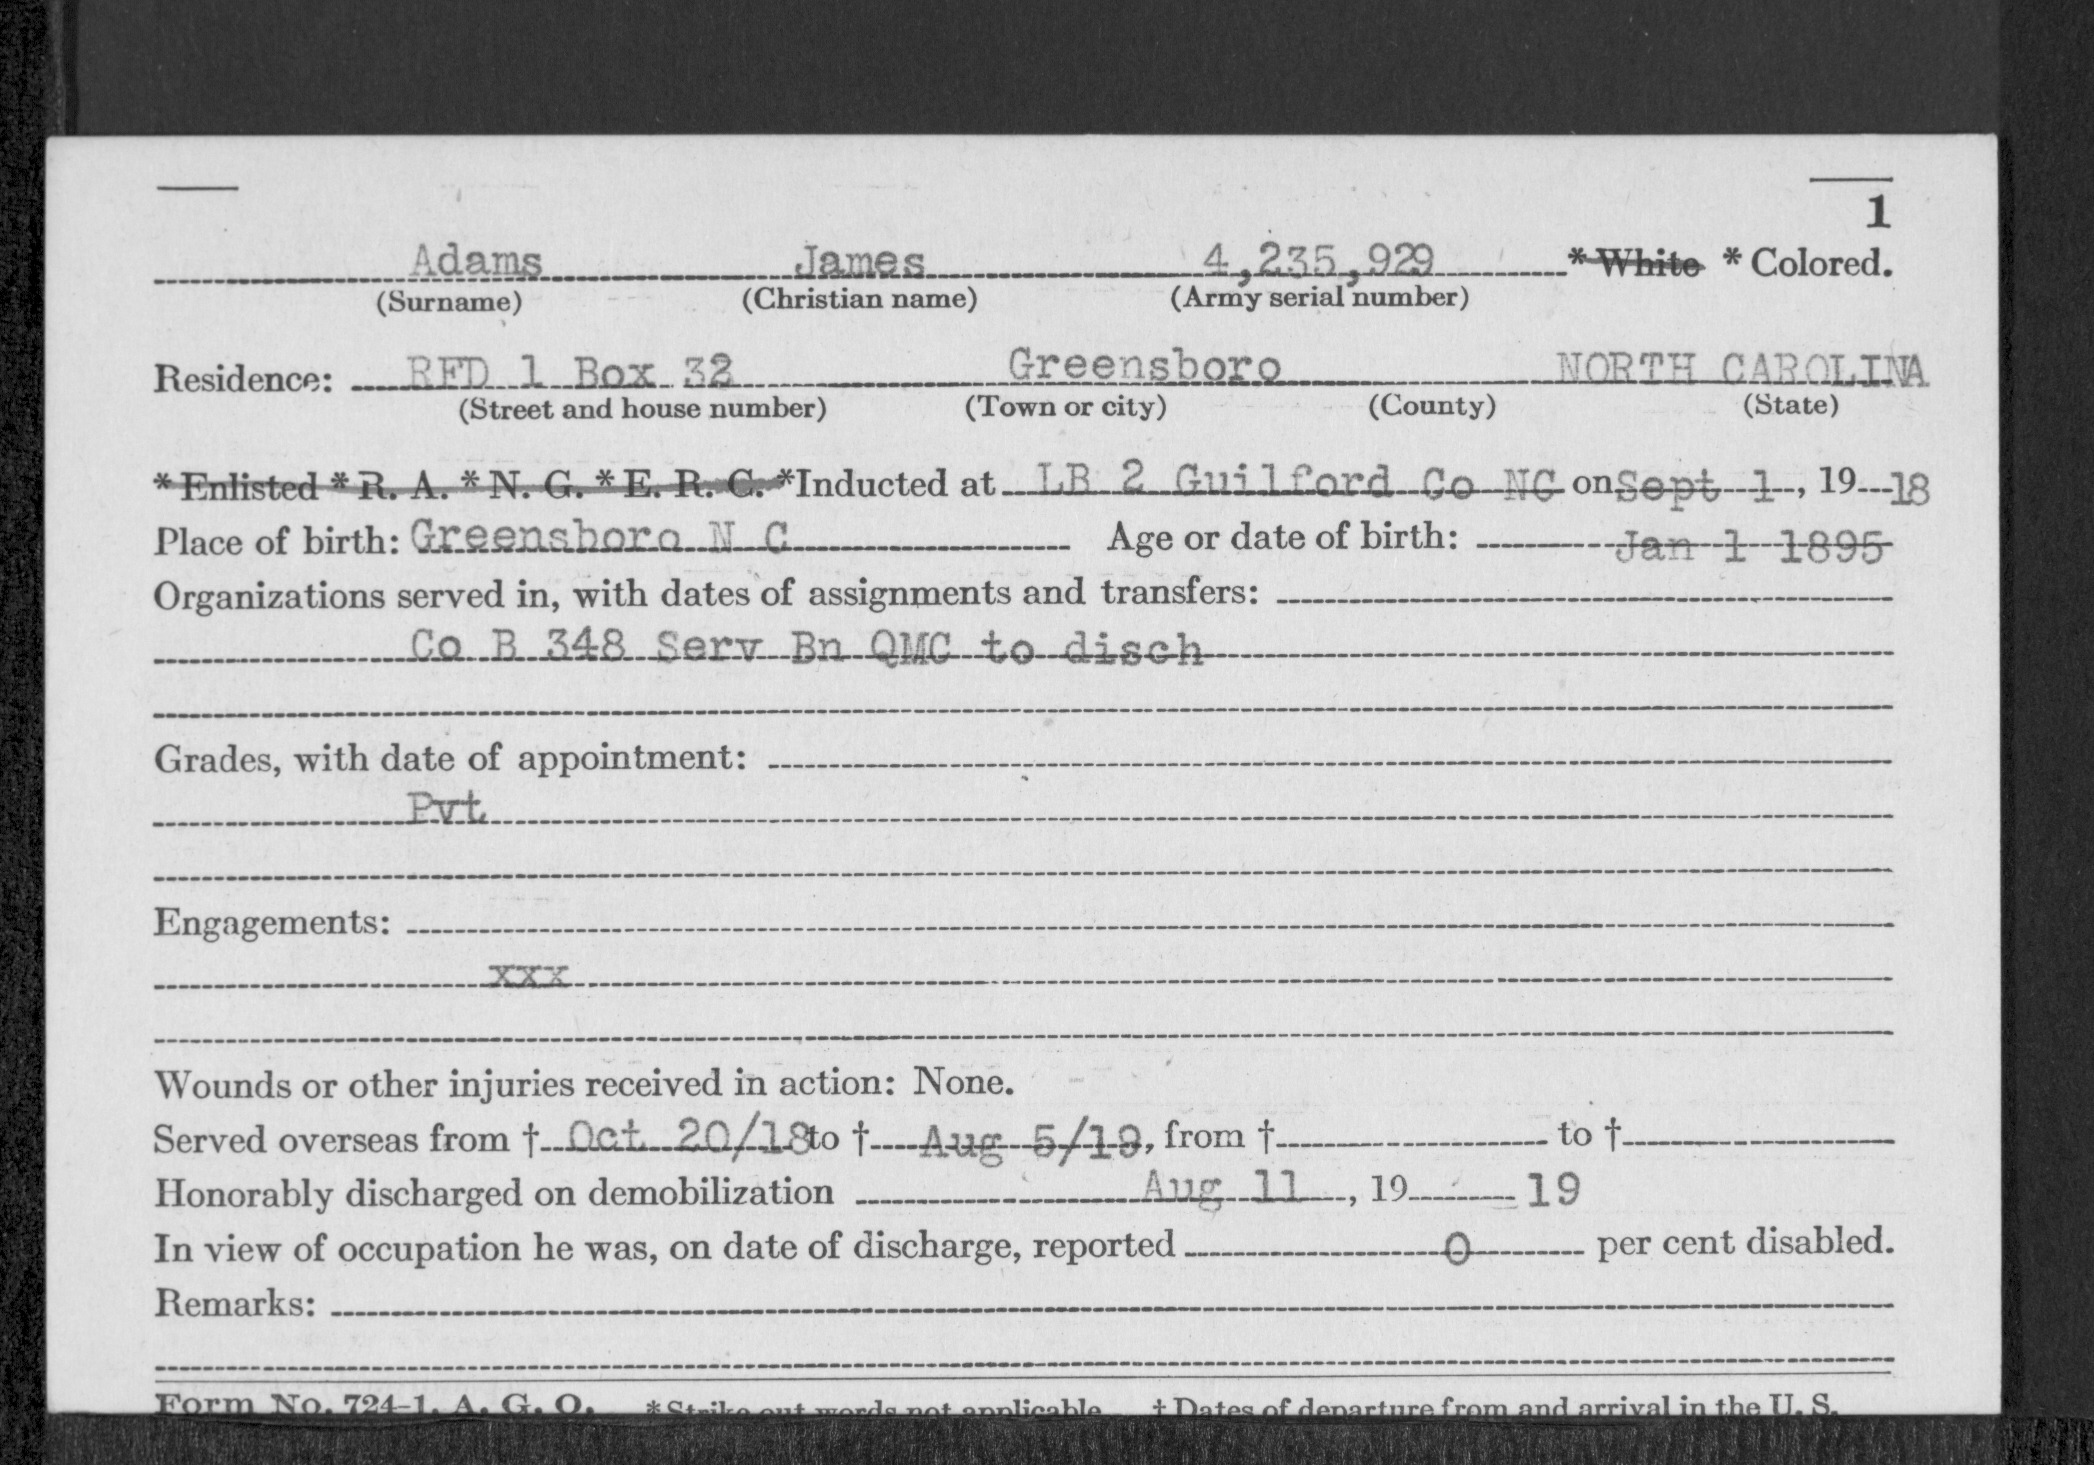 1
Adams James 4,235,929 * White * Colored.
(Surname) (Christian name) (Army serial number)
Residence: RFD 1 Box 32 Greensboro NORTH CAROLINA
(Street and house number) (Town or city) (County) (State)
* Enlisted * R. A. * N. G. * E. R. C. *Inducted at LB 2 Guilford Co NC on Sept 1, 19 18
Place of birth: Greensboro N C Age or date of birth: Jan 1 1895
Organizations served in, with dates of assignments and transfers:
Co B 348 Serv Bn QMC to disch
Grades, with date of appointment:
Pvt
Engagements:
xxx
Wounds or other injuries received in action: None.
Served overseas from † Oct 20/18 to † Aug 5/19, from † to †
Honorably discharged on demobilization Aug 11, 19 19
In view of occupation he was, on date of discharge, reported 0 per cent disabled.
Remarks:
Form No. 724-1, A. G. O. *Strike out words not applicable. † Dates of departure from and arrival in the U. S.